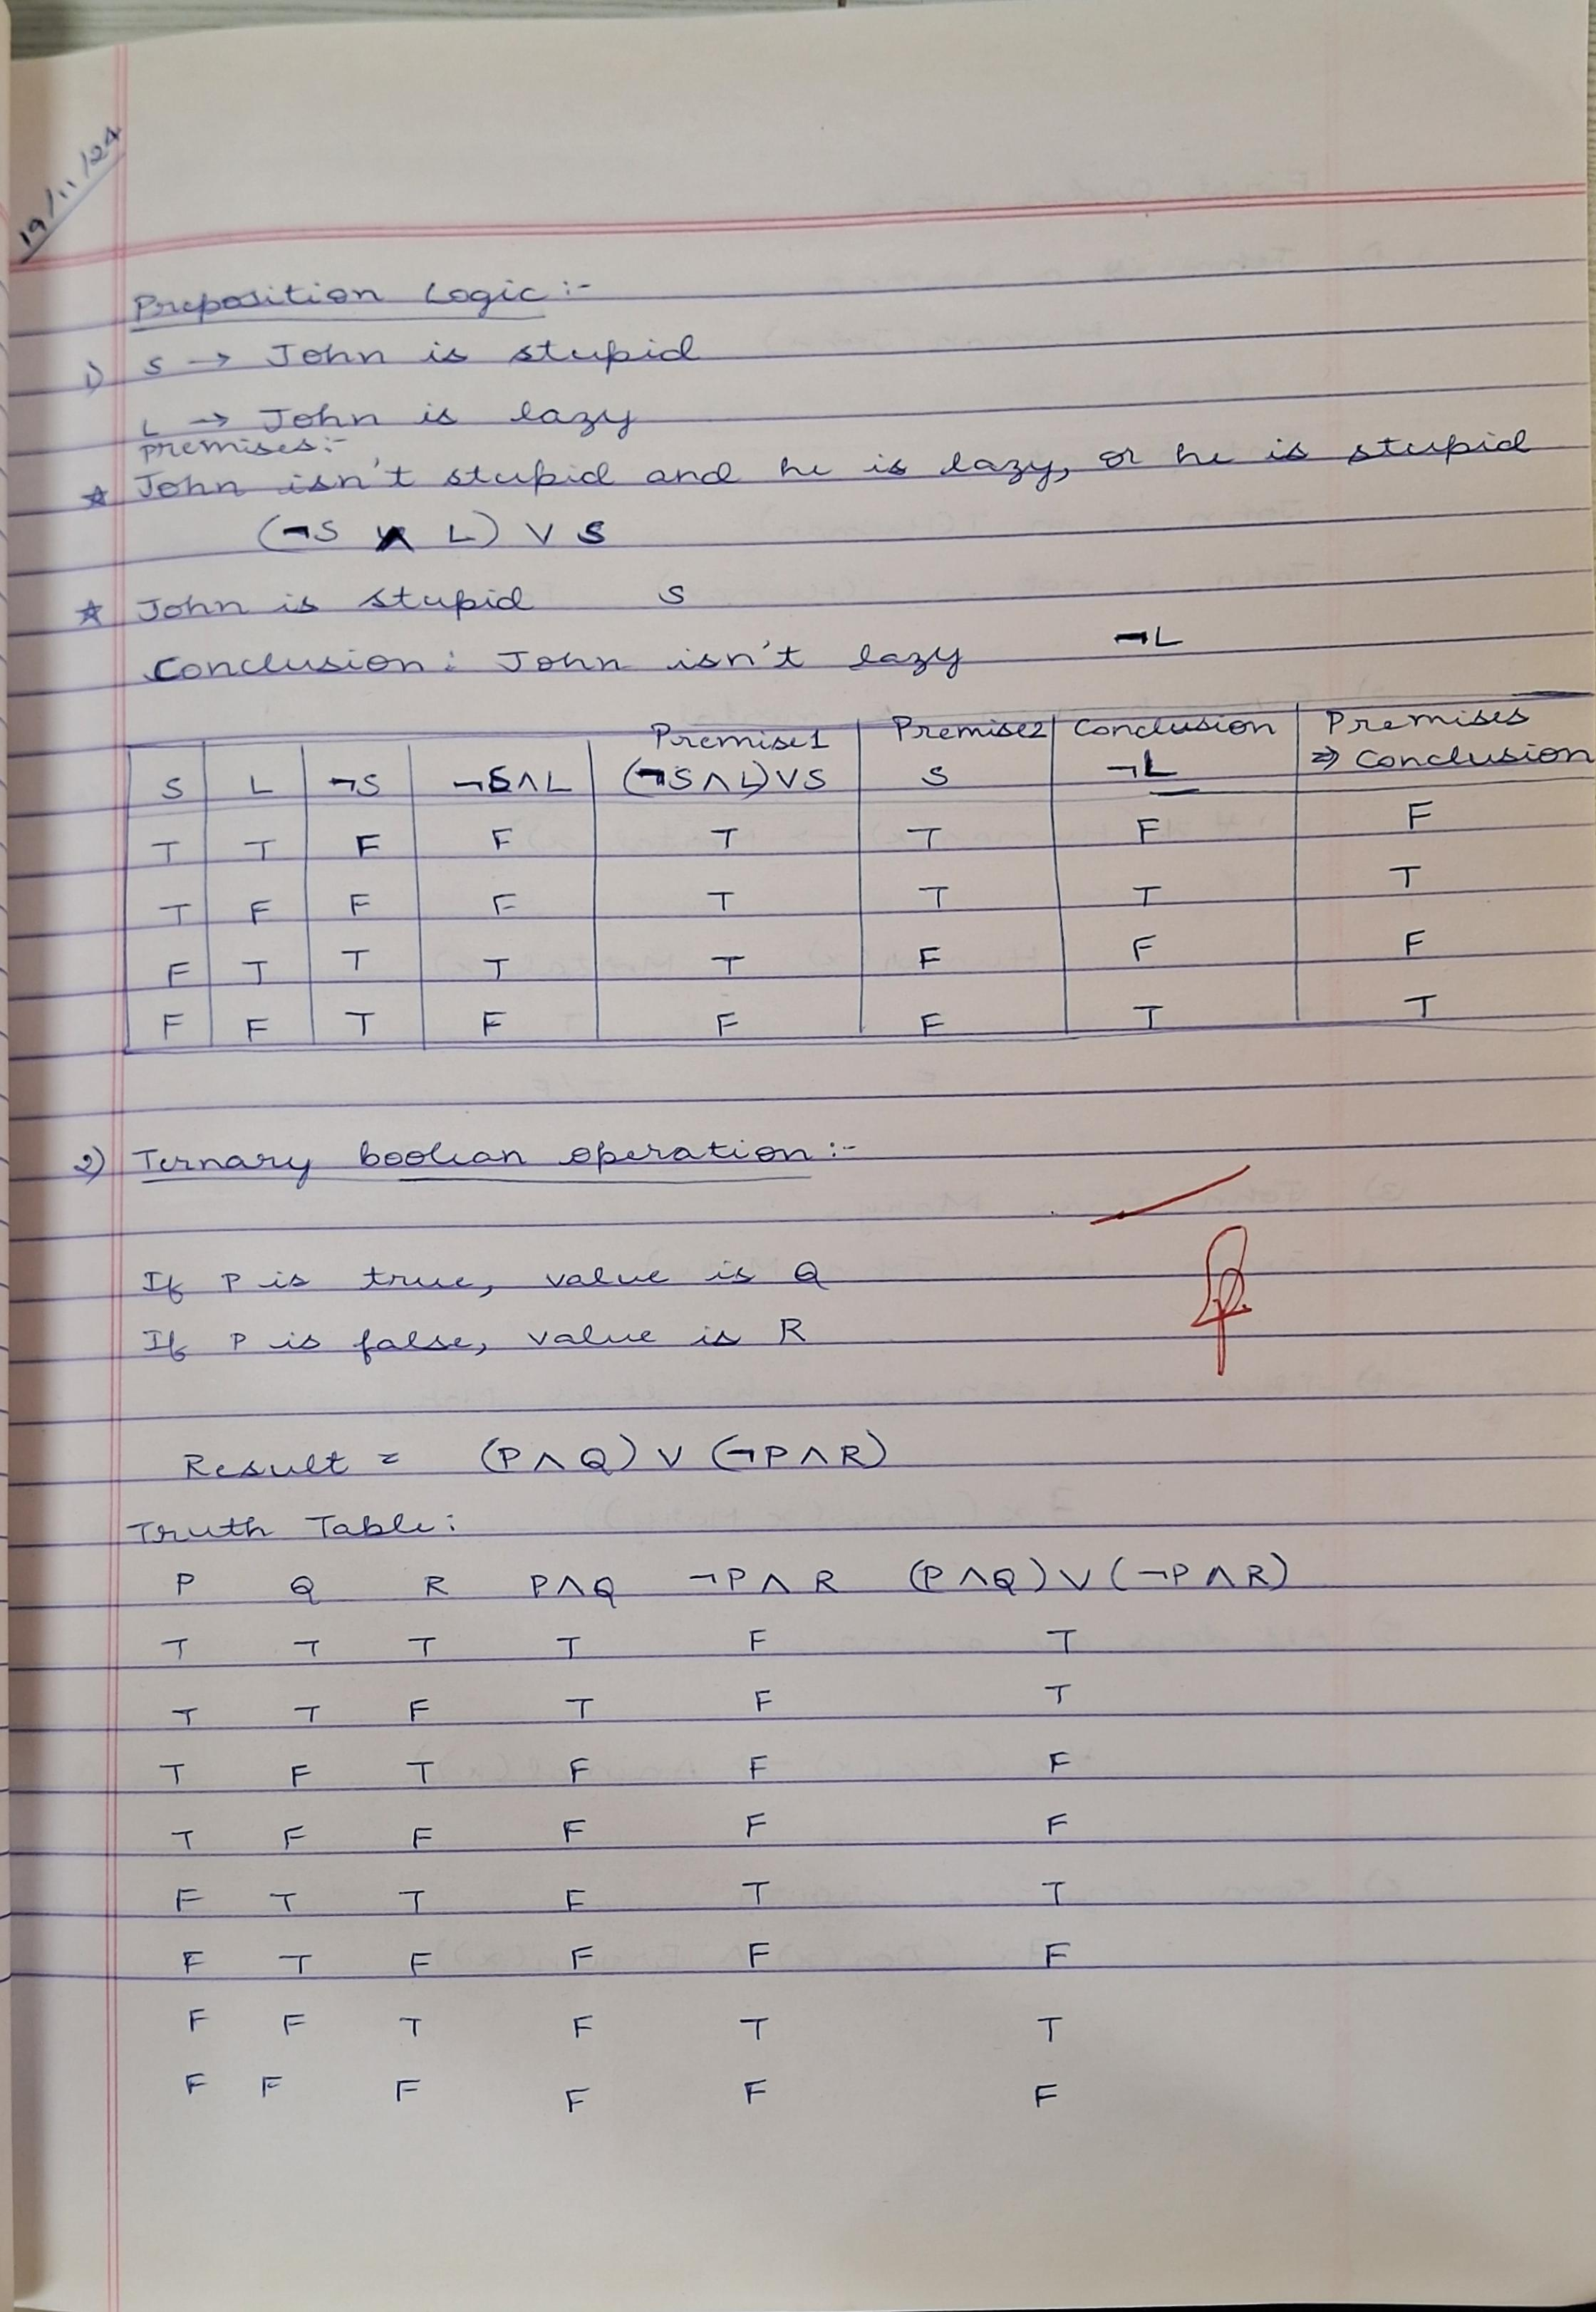 19/11/24
Preposition Logic :-
1) S → John is stupid
L → John is lazy
premises:-
☆ John isn't stupid and he is lazy, or he is stupid
(¬S ∧ L) ∨ S
☆ John is stupid S
Conclusion: John isn't lazy ¬L
Premise1 Premise2 Conclusion Premises
S L ¬S ¬S∧L (¬S∧L)∨S S ¬L ⇒ Conclusion
T T F F T T F F
T F F F T T T T
F T T T T F F F
F F T F F F T T
2) Ternary boolean operation :-
If P is true, value is Q
If P is false, value is R
Result = (P∧Q) ∨ (¬P∧R)
Truth Table:
P Q R P∧Q ¬P∧R (P∧Q)∨(¬P∧R)
T T T T F T
T T F T F T
T F T F F F
T F F F F F
F T T F T T
F T F F F F
F F T F T T
F F F F F F